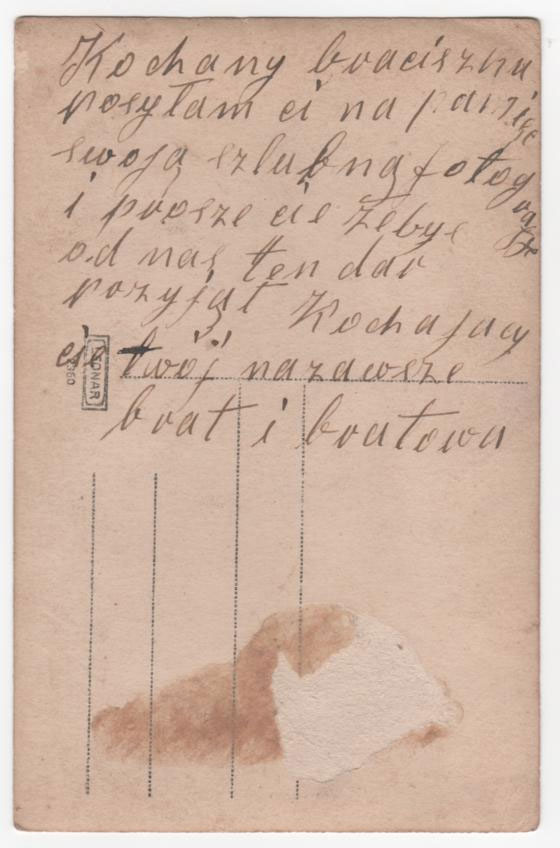 Kochany braciszku
posyłam ci na pamię
swoją szlubną fotog
i prosze cie żebyś
od nas ten dar
pszyjął Kochający
cię twój nazawsze
brat i bratowa
LEONAR